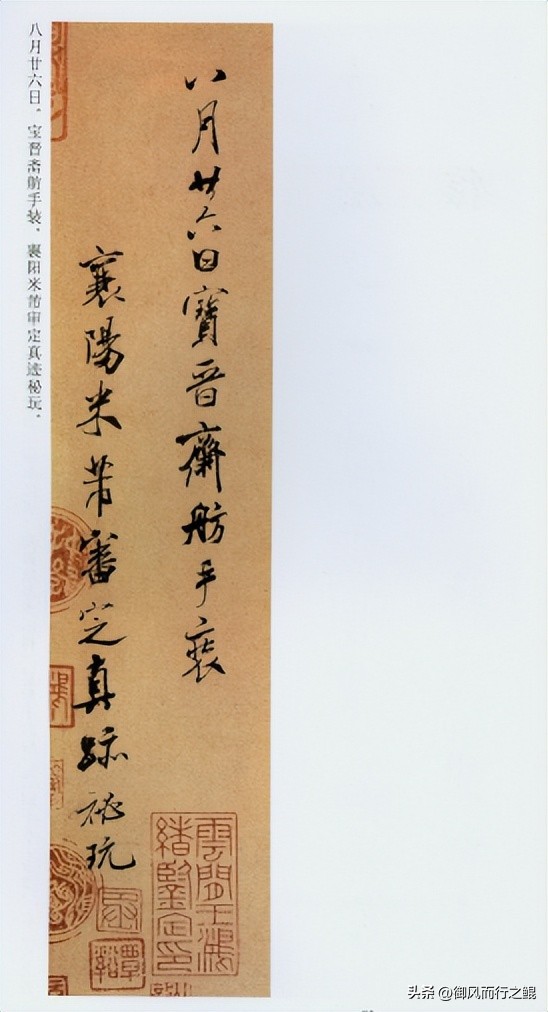 八月廿六日寶晉齋舫手裝
襄陽米芾審定真跡祕玩
雲間王鴻
緒鑒定印
八月廿六日，宝晋斋舫手装，襄阳米芾审定真迹秘玩。
头条 @御风而行之鲲